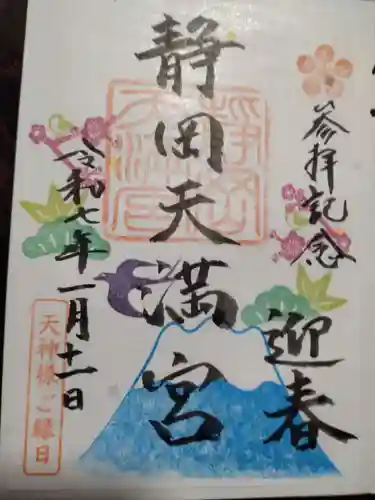 参拝記念
迎春
静岡天満宮
静岡天満宮
令和七年一月十一日
天神様ご縁日